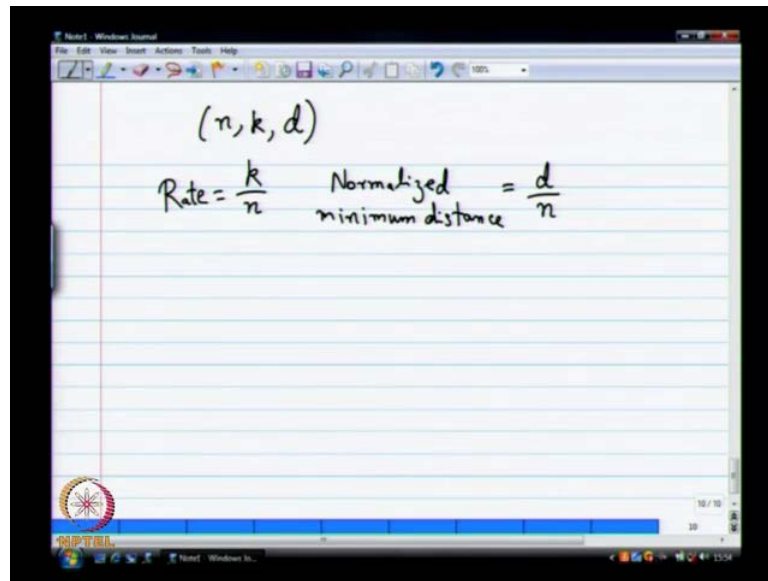 Note1 - Windows Journal
File Edit View Insert Actions Tools Help
100%
(n, k, d)
Rate = k/n Normalized minimum distance = d/n
10 / 10
10
NPTEL
Note1 - Windows Jo...
15:54